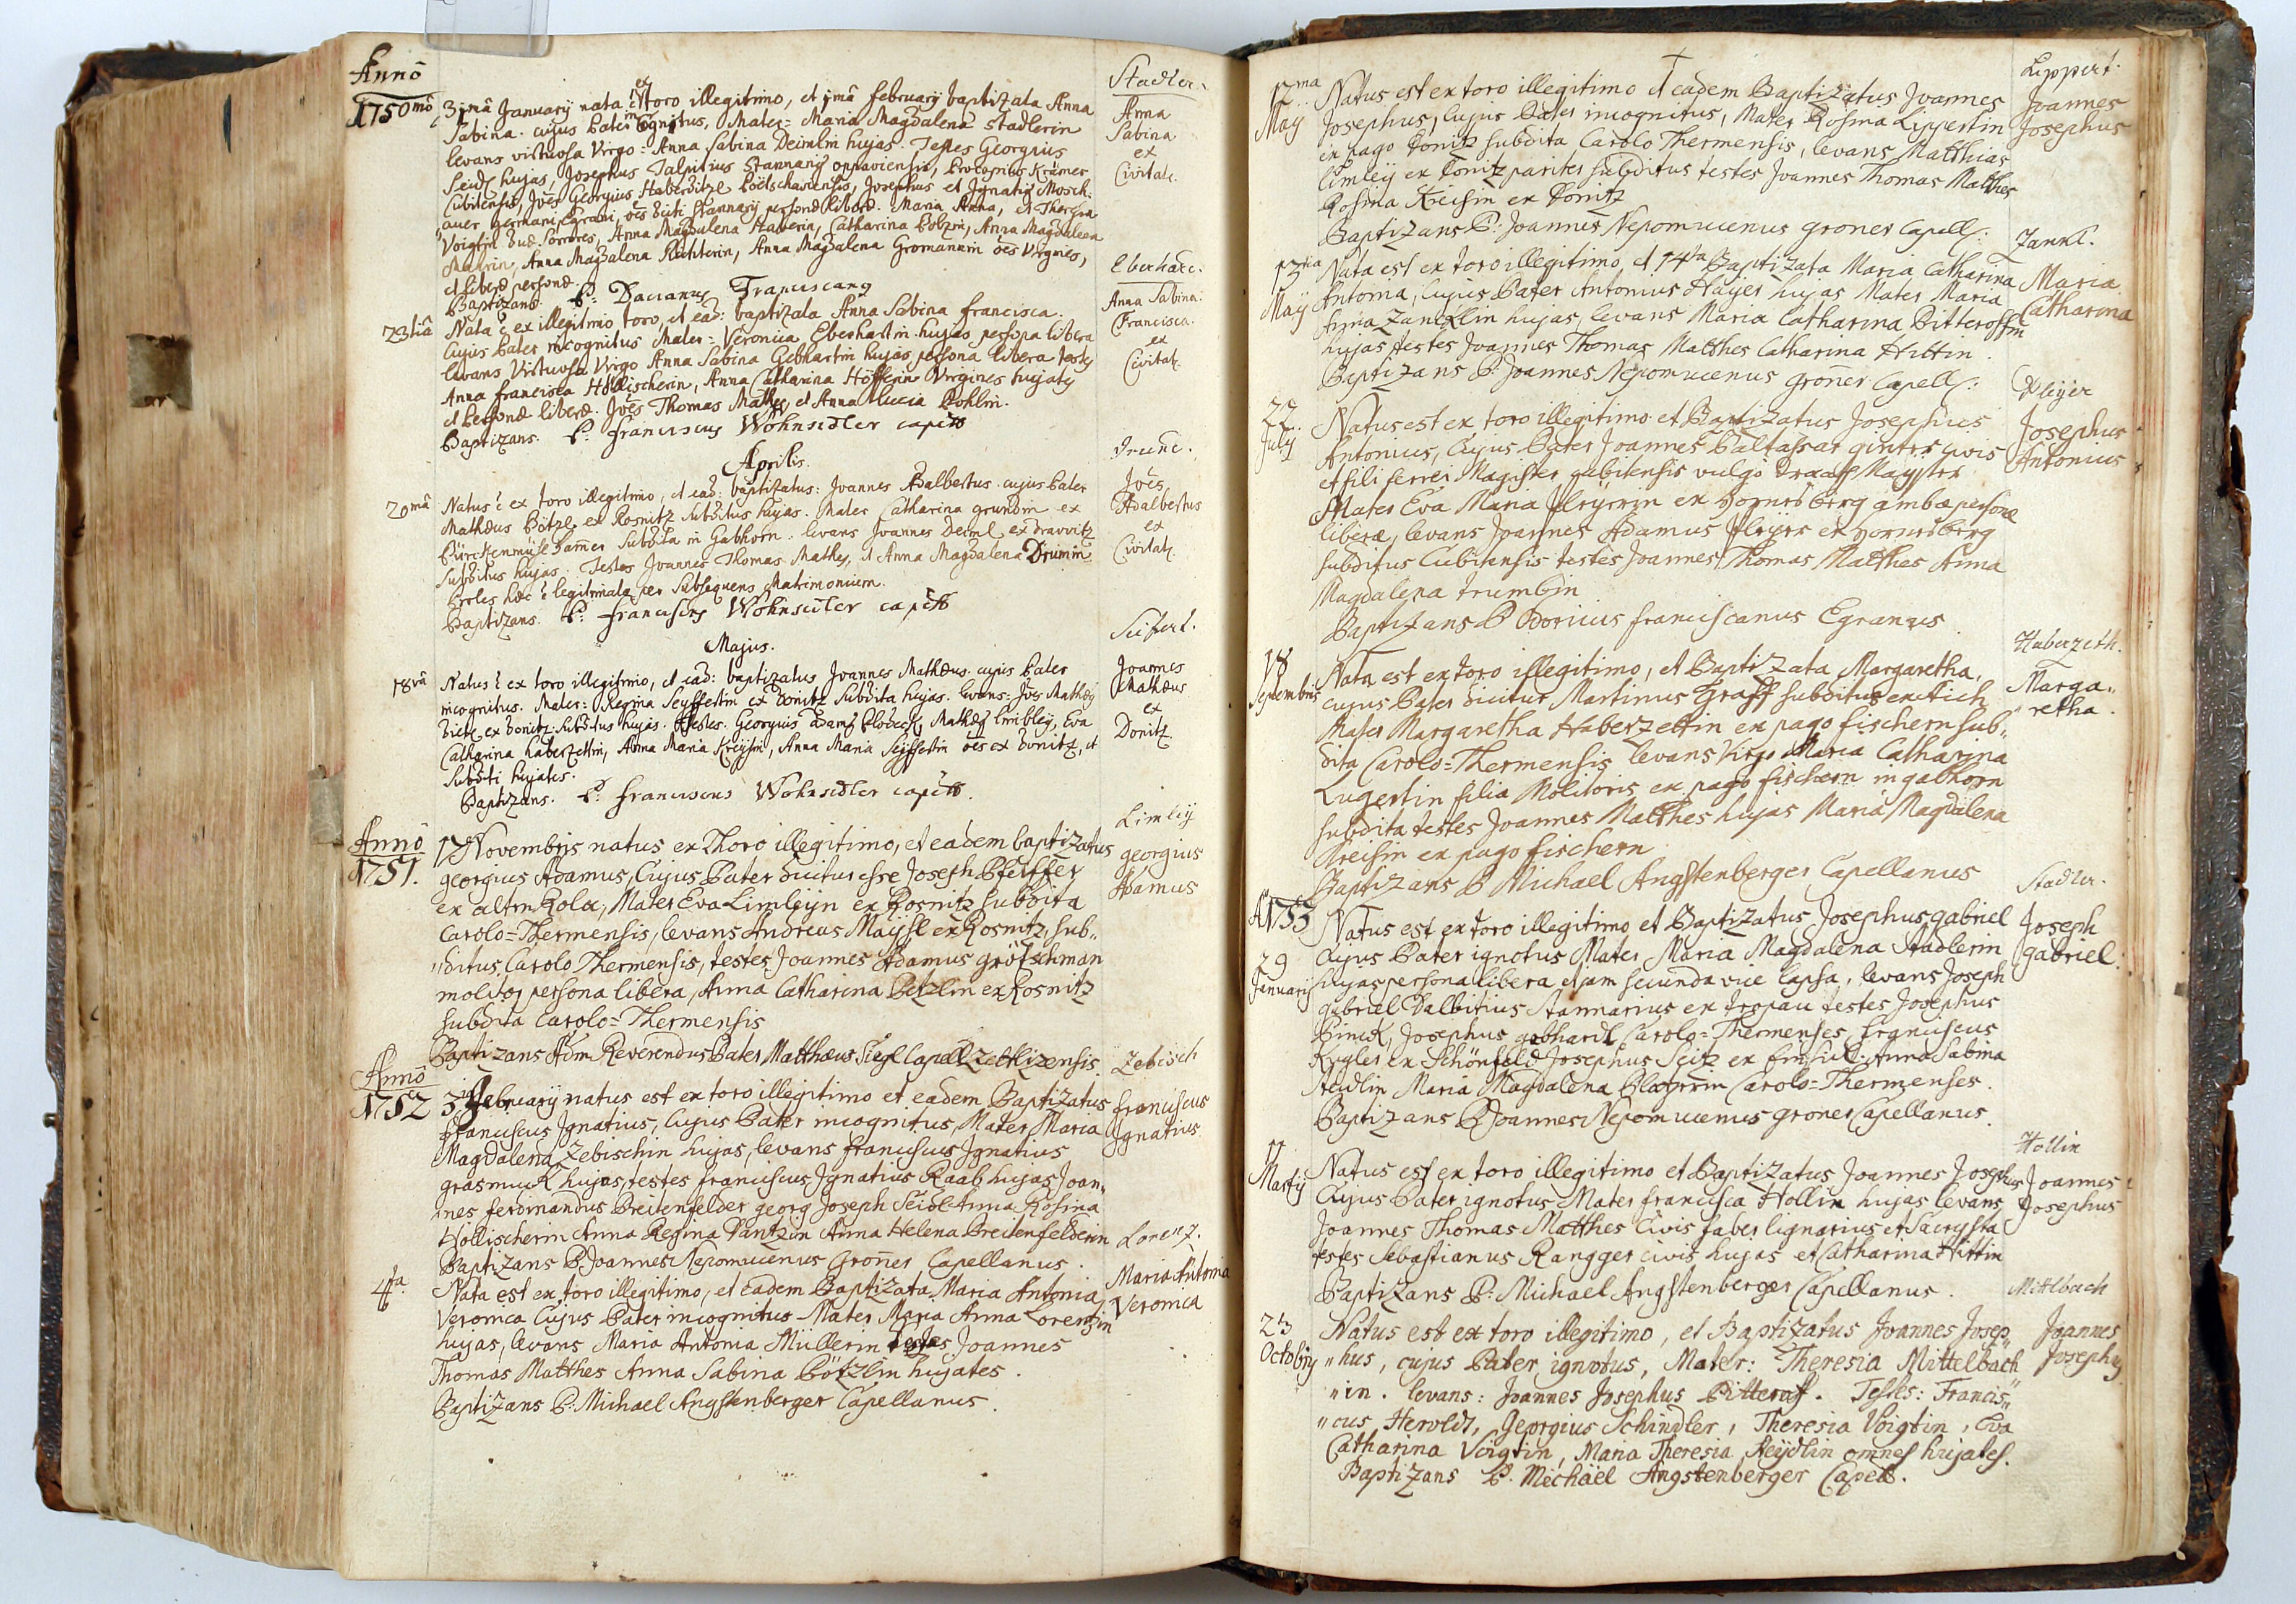 Anno
1750mo
31ma January nata e ex toro illegitimo, et 1ma february baptizata Anna
Sabina. cujus Pater incognitus, Mater = Maria Magdalena Stadlerin
levans virtuosa Virgo = Anna Sabina Deimlin hujas. Testes Georgius
Seidl hujas, Josephus Talpitius Stannary oppaviensis, Procopius Krämer
Cubitensis, Joes Georgius Haberditzl, Josephus et Ignatig Mosch:
auer germani fratres, oes dicti Stannarij personæ liberæ. Maria Anna, et Theresia
Voigtin duæ Sorores, Anna Magdalena Haberin, Catharina Pobzin, Anna Magdalena
Anna Magdalena Richterin, Anna Magdalena Gromannin oes Virgines,
et liberæ personæ.
Baptizans. P: Dacianus Franciscang
Stadler.
Anna
Sabina
ex
Civitate.
23tia
Nata e ex illegitimo toro, et ead: baptizata Anna Sabina francisca.
Cujus Pater incognitus Mater = Veronica Eberhartin hujas persona libera
levans Virtuosa Virgo Anna Sabina Gebhartin hujas persona libera testes
Anna francisca Höllischerin, Anna Catharina Höfferin Virgines hujates
et Personæ liberæ. Joes Thomas Mathes, et Anna Lucia Pohlin.
Baptizans. P: franciscus Wohnsidler
Eberhart.
Anna Sabina
Francisca.
ex
Civitate.
Aprilis.
20ma
Natus e ex toro illegitimo, et ead: baptizatus: Joannes Adalbertus. cujus Pater
Mathæus Pötzl ex Rosnitz Subditus hujas. Mater Catharina grundin ex
Subdita in Gabhorn. levans Joannes Deiml ex dravvitz
Subditus hujas. Testes Joannes Thomas Mathes, et Anna Magdalena Drumin.
Proles hæc e legitimata per Subsequens Matrimonium.
Baptizans. P: franciscus Wohnsidler
Joes
Adalbertus
ex
Civitate.
Majus.
18va
Natus e ex toro illegitimo, et ead: baptizatus Joannes Mathæus. cujus Pater
incognitus. Mater = Regina Seyffertin ex Donitz Subdita hujas. levans: Joes Mathæg
ex Donitz Subditus hujas. Testes. Georgius Adamg, Mathæg Limbley, Eva
Catharina Haberzettin, Anna Maria Kreysin, Anna Maria Seyffertin oes ex Donitz, et
Subditi hujates.
Baptizans. P: franciscus Wohnsidler
Seifert.
Joannes
Mathæus
ex
Donitz.
Anno
1751.
17 Novembris natus ex Thoro illegitimo, et eadem baptizatus
georgius Adamus, Cujus Pater dicitur esse Joseph Pfeiffer
ex alten Rola, Mater Eva Limleyin ex Rosnitz subdita
Carolo=Thermensis, levans Andreas Maysl ex Rosnitz, sub„
„ditus Carolo Thermensis, testes Joannes Adamus grötschman
molitor persona libera, Anna Catharina Petzlin ex Rosnitz
subdita Carolo=Thermensis
Baptizans Adm Reverendus Pater Matthæus Siegl Capell zettlizensis.
Limleÿ
georgius
Adamus
Anno
1752
3tia february natus est ex toro illegitimo et eadem Baptizatus
franciscus Ignatius, Cujus Pater incognitus, Mater Maria
Magdalena Zebischin hujas, levans franciscus Ignatius
grasmuck hujas, testes franciscus Ignatius Raab hujas Joan„
„nes ferdinandus Breitenfelder georg Joseph Seidl Anna Rosina
Hollischerin Anna Regina Dantzin Anna Helena Breitenfelderin
Baptizans P. Joannes Nepomucenus Groner Capellanus.
Zebisch
franciscus
Ignatius.
4ta
Nata est ex toro illegitimo, et eadem Baptizata Maria Antonia
Veronica Cujus Pater incognitus Mater Maria Anna Lorentzin
hujas, levans Maria Antonia Müllerin testes Joannes
Thomas Matthes Anna Sabina Pötzlin hujates.
Baptizans P. Michael Angstenberger Capellanus.
Lorenz.
Maria Antonia
Veronica
May
Natus est ex toro illegitimo et eadem Baptizatus Joannes
Josephus, Cujus Pater incognitus, Mater Rosina Lippertin
ex pago Donitz subdita Carolo Thermensis, levans Matthias
Limleÿ ex Donitz pariter subditus testes Joannes Thomas Matthes
Rosina Kreisin ex Donitz
Baptizans P: Joannes Nepomucenus groner Capell:
Lippert.
Joannes
Josephus
13tia
May
Nata est ex toro illegitimo et 14ta Baptizata Maria Catharina
Antonia, Cujus Pater Antonius Hayer hujas Mater Maria
Anna Zancklin hujas, levans Maria Catharina Bitteroffin
hujas, testes Joannes Thomas Matthes Catharina Hittin.
Baptizans P. Joannes Nepomucenus groner Capell:
Zankl.
Maria
Catharina
22.
July
Natus est ex toro illegitimo et Baptizatus Josephus
Antonius, Cujus Pater Joannes Baltassar civis
et fili ferrei Magister cubitensis vulgo
Mater Eva Maria ex Hornersberg ambæ personæ
liberæ, levans Joannes Adamus ex Hornersberg
subditus Cubitensis testes Joannes Thomas Matthes Anna
Magdalena trumbin
Baptizans P Odoricus franciscanus Egranus
Josephus
Antonius
18
Septembris
Nata est ex toro illegitimo, et Baptizata Margaretha,
cujus Pater dicitur Martinus Graff subditus
Mater Margaretha Haberzettin ex pago fischern sub„
dita Carolo=Thermensis levans Virgo Maria Catharina
Lugertin filia Molitoris ex pago fischern in gabhorn
subdita testes Joannes Matthes hujas Maria Magdalena
Kreisin ex pago fischern
Baptizans P Michael Angstenberger Capellanus
Haberzeth.
Marga„
retha.
A 1753
29
January
Natus est ex toro illegitimo et Baptizatus Josephus gabriel
Cujus Pater ignotus Mater Maria Magdalena Stadlerin
hujas persona libera etiam secunda vice lapsa, levans Joseph
gabriel Dalbitius Stannarius ex tropau testes Josephus
Pimck, Josephus gebhardt Carolo=Thermenses, franciscus
Kugler ex Schönfeld Josephus Seitz ex Anna Sabina
Maria Magdalena Carolo=Thermenses.
Baptizans P Joannes Nepomucenus groner Capellanus.
Stadler.
Joseph
gabriel.
17
Martij
Natus est ex toro illegitimo et Baptizatus Joannes Josephus
Cujus Pater ignotus Mater francisca Hollin hujas levans
Joannes Thomas Matthes Civis faber lignarius et Sacrysta
testes Sebastianus Rangger civis hujas et Catharina Hittin
Baptizans P: Michael Angstenberger Capellanus.
Hollin
Joannes
Josephus
23
Octobris
Natus est ex toro illegitimo, et Baptizatus Joannes Josep„
„hus, cujus Pater ignotus, Mater: Theresia Mittelbach
„in. levans: Joannes Josephus Bitteroff. Testes: Francis„
„cus Heroldt, Georgius Schindler, Theresia Voigtin, Eva
Catharina Voigtin, Maria Theresia Reÿdlin omnes hujates.
Baptizans P. Michäel Angstenberger Capell.
Mittlbach
Joannes
Josephg